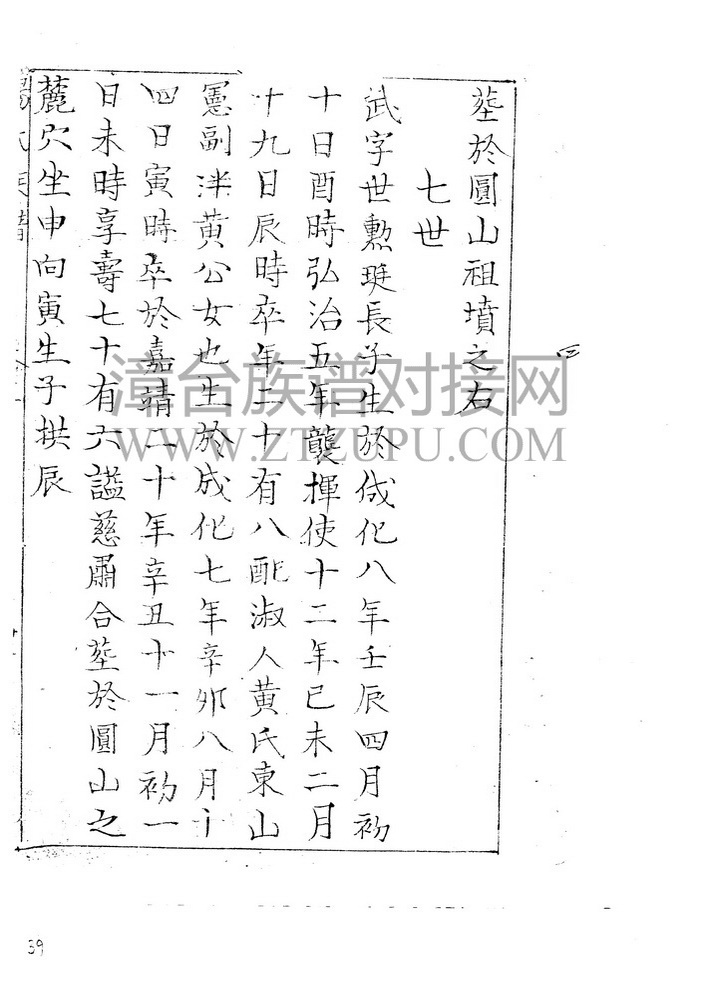 塟於圓山祖墳之右
七世
武字世勲珽長子生於成化八年壬辰四月初
十日酉時弘治五年襲揮使十二年已未二月
十九日辰時卒年二十有八配淑人黄氏東山
憲副泮黄公女也生於成化七年辛卯八月十
四日寅時卒於嘉靖二十年辛丑十一月初一
日未時享壽七十有六謚慈肅合塟於圓山之
麓穴坐申向寅生子拱辰
漳台族谱对接网
WWW.ZTZUPU.COM
39